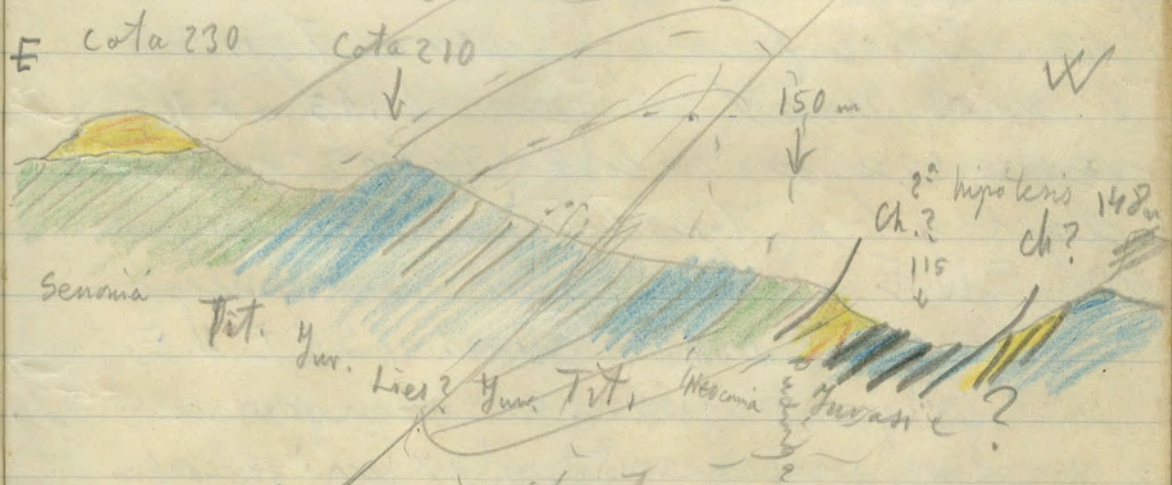 E
Cota 230
Cota 210
W
150 m
2ª hipòtesis
148 m
Ch. ?
115
Ch ?
Senonià
Tit.
Jur.
Lies ?
Jur.
Tit.
Neocomià
Jurasic
?